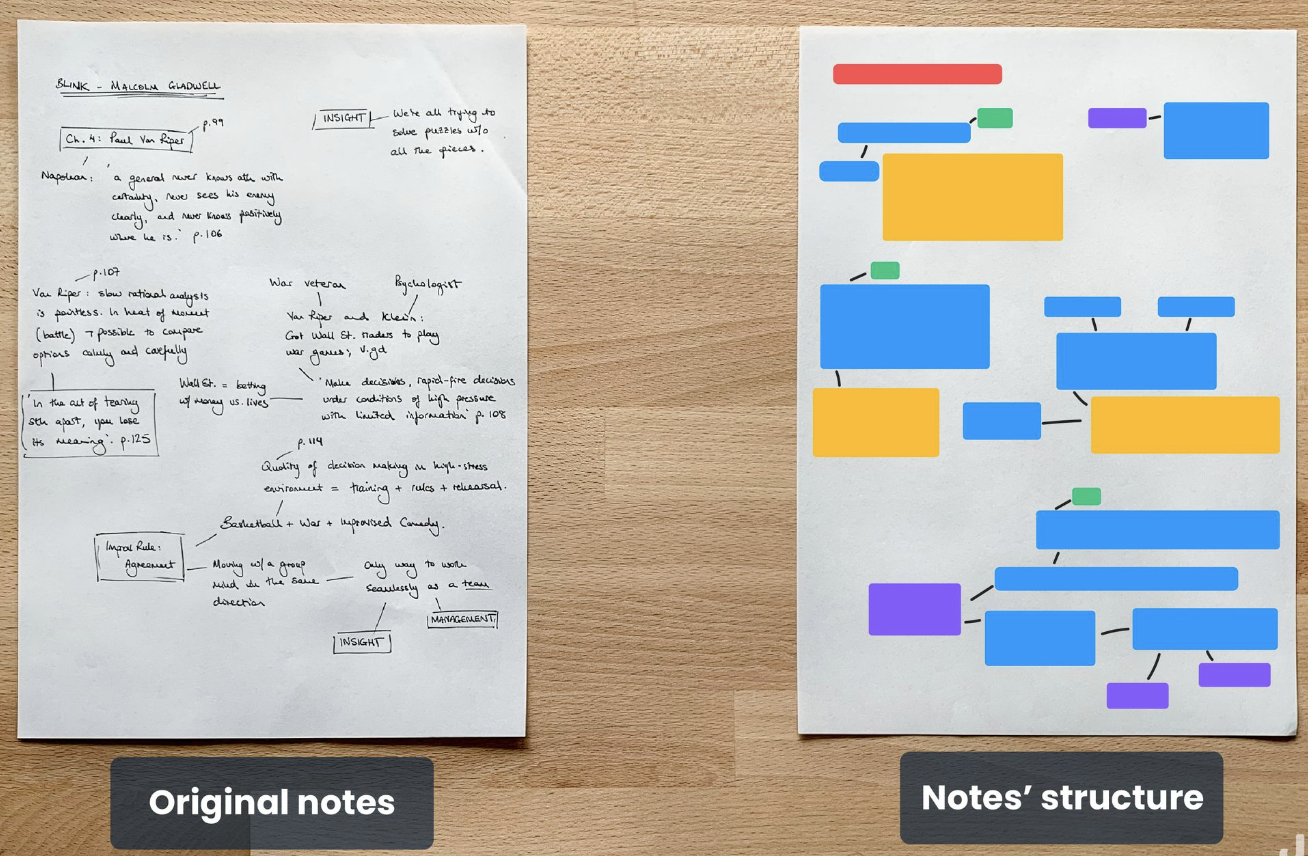 BLINK - MALCOLM GLADWELL
Ch. 4: Paul Van Riper
p.99
INSIGHT
We're all trying to
solve puzzles w/o
all the pieces.
Napoleon:
'a general never knows sth with
certainty, never sees his enemy
clearly, and never knows positively
where he is.' p.106
p.107
Van Riper: slow rational analysis
is pointless. In heat of moment
(battle) → possible to compare
options calmly and carefully
'In the act of tearing
sth apart, you lose
its meaning'. p.125
War veteran
Psychologist
Van Riper and Klein:
Got Wall St. traders to play
war games; v.gd
Wall St. = betting
w/ money vs. lives
'Make decisions, rapid-fire decisions
under conditions of high pressure
with limited information' p.108
p.114
Quality of decision making in high-stress
environment = training + rules + rehearsal.
Basketball + War + Improvised Comedy.
Improv Rule:
Agreement
Moving w/ a group
mind in the same
direction
Only way to work
seamlessly as a team
INSIGHT
MANAGEMENT
Original notes
Notes' structure